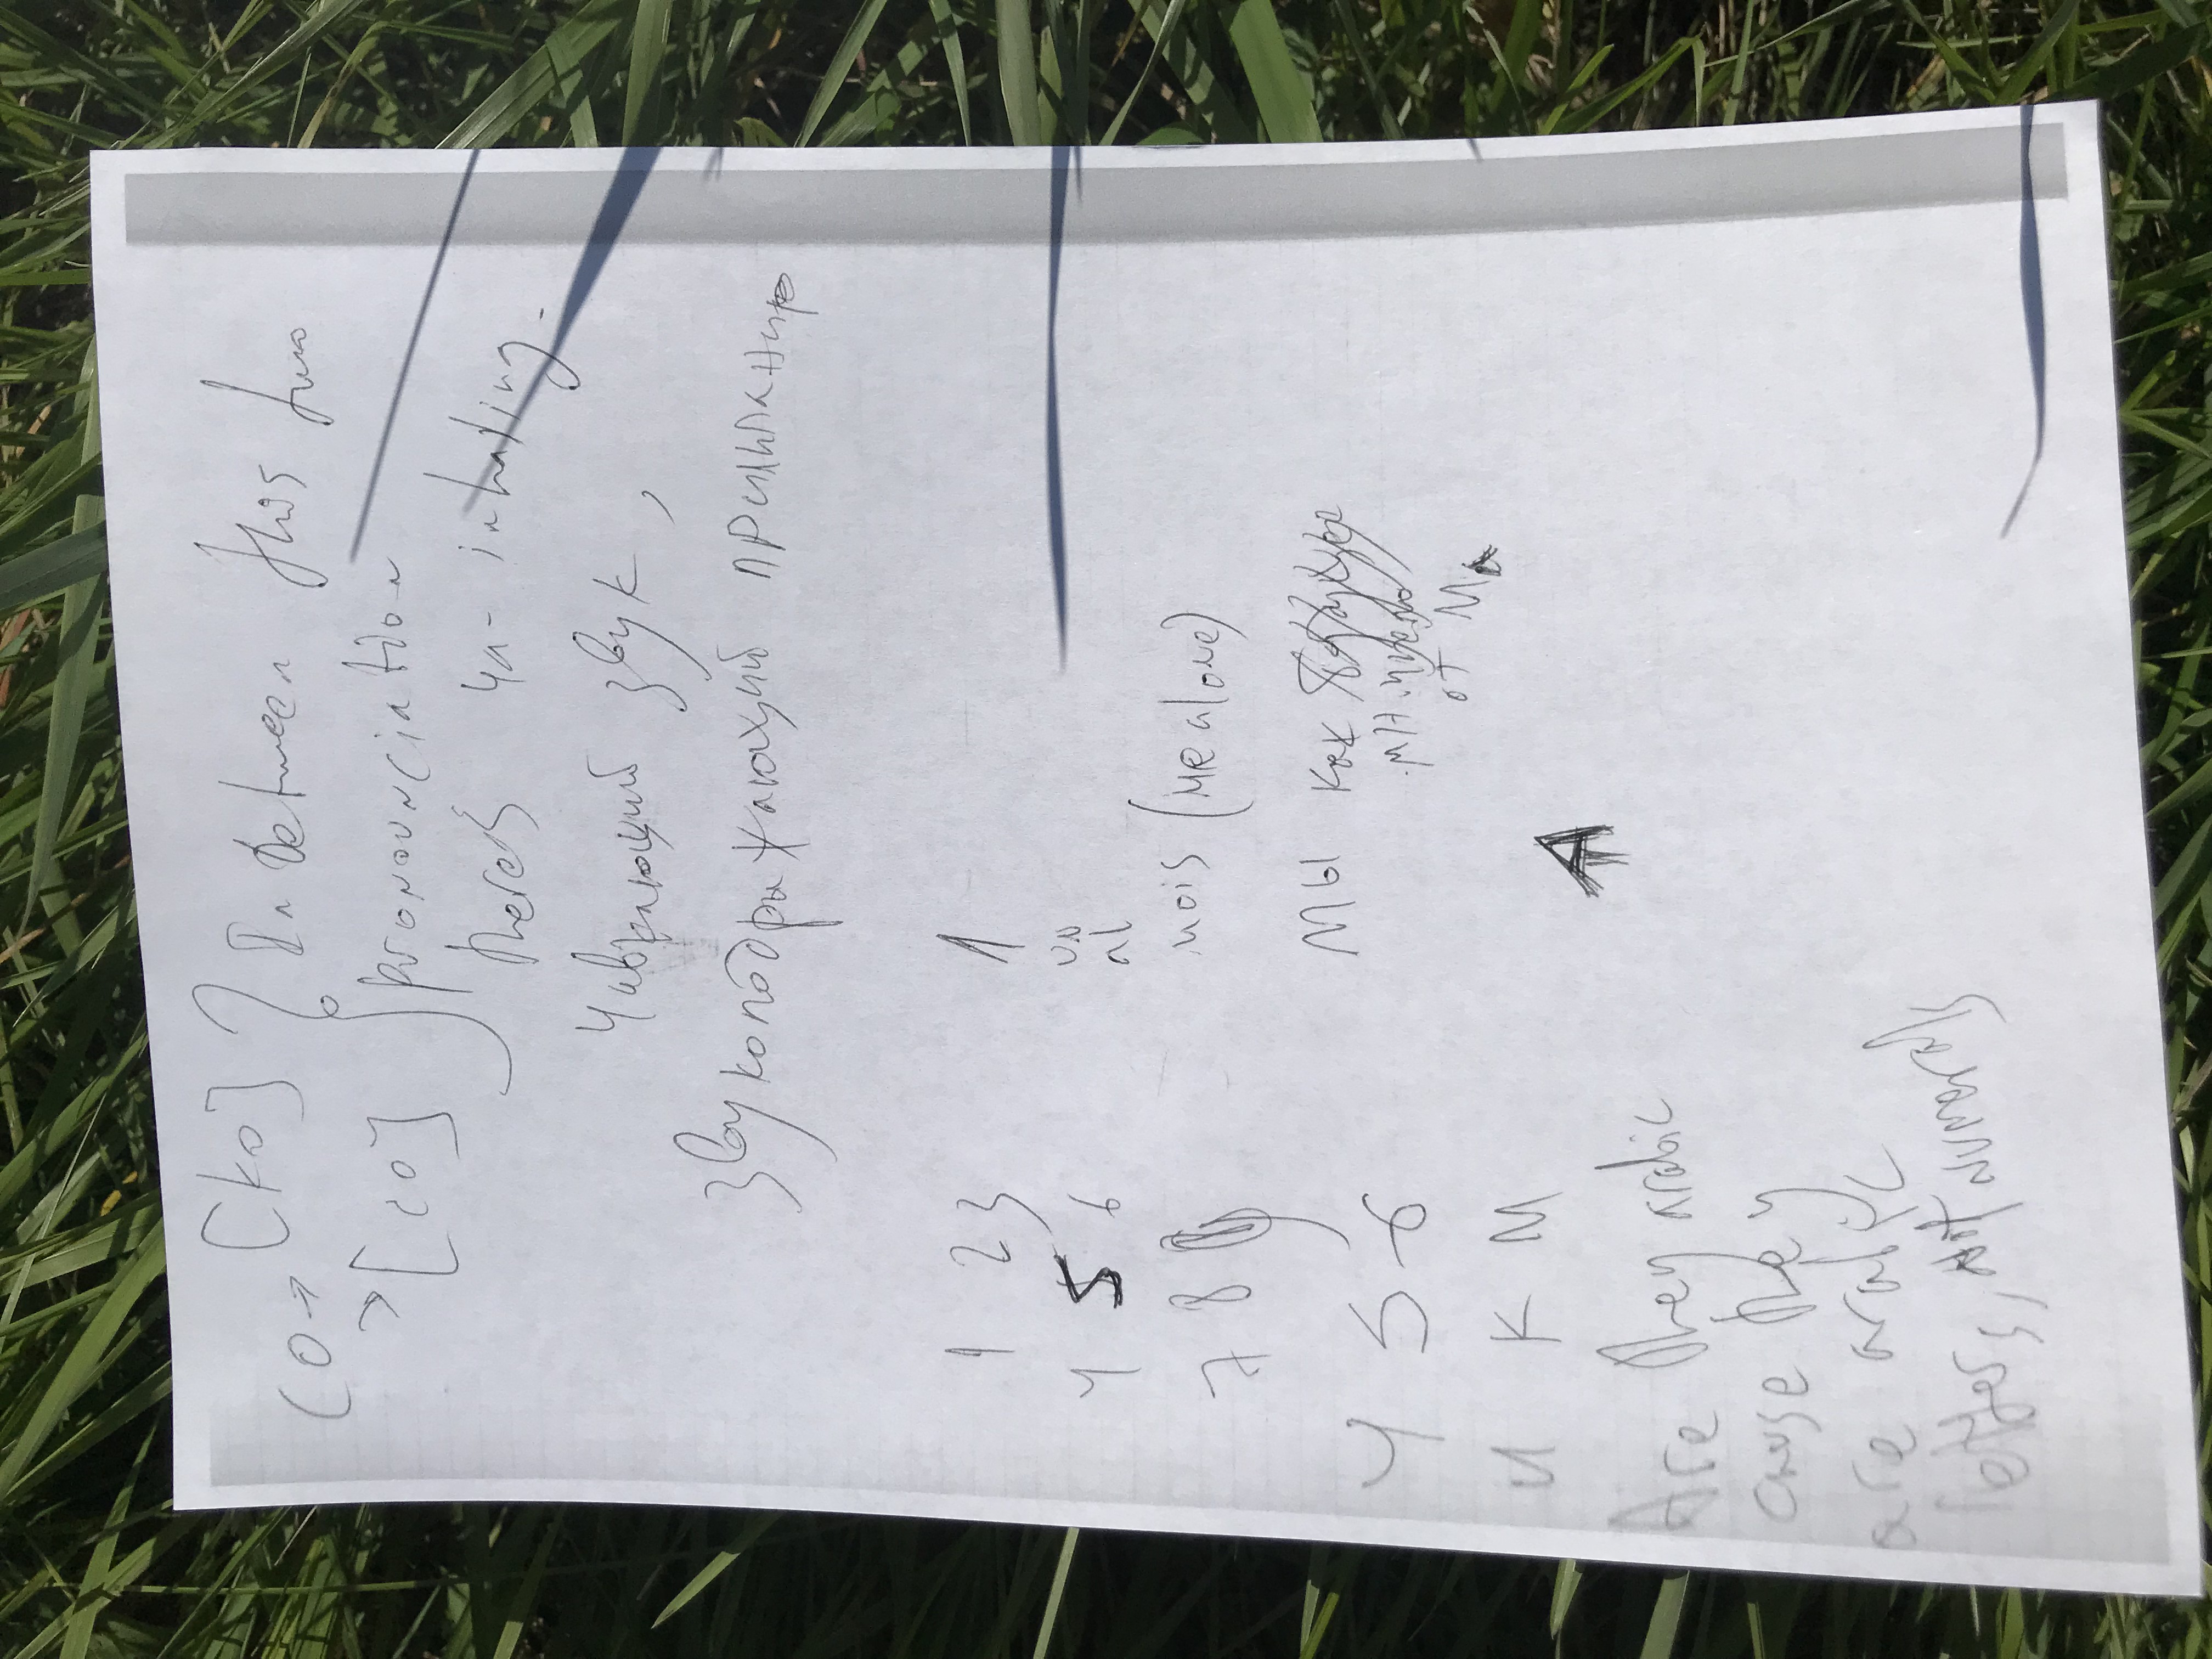 [ko]
CO →
> [co]
In between this two
pronounciation
there's ча- inhaling.
Чавкающий звук,
звукоподражающий прилипанию
1 2 3
4 5 6
7 8 9
4 5 6
И К М
Are they arabic
cause they
are arabic
letters, not numerals
1
un
al
mois (me alone)
МЫ как
от Ma
A